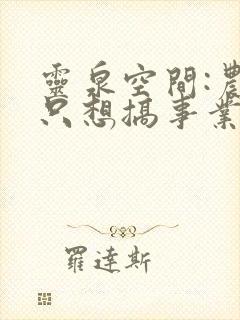 靈泉空間:農
只想搞事業
羅達斯